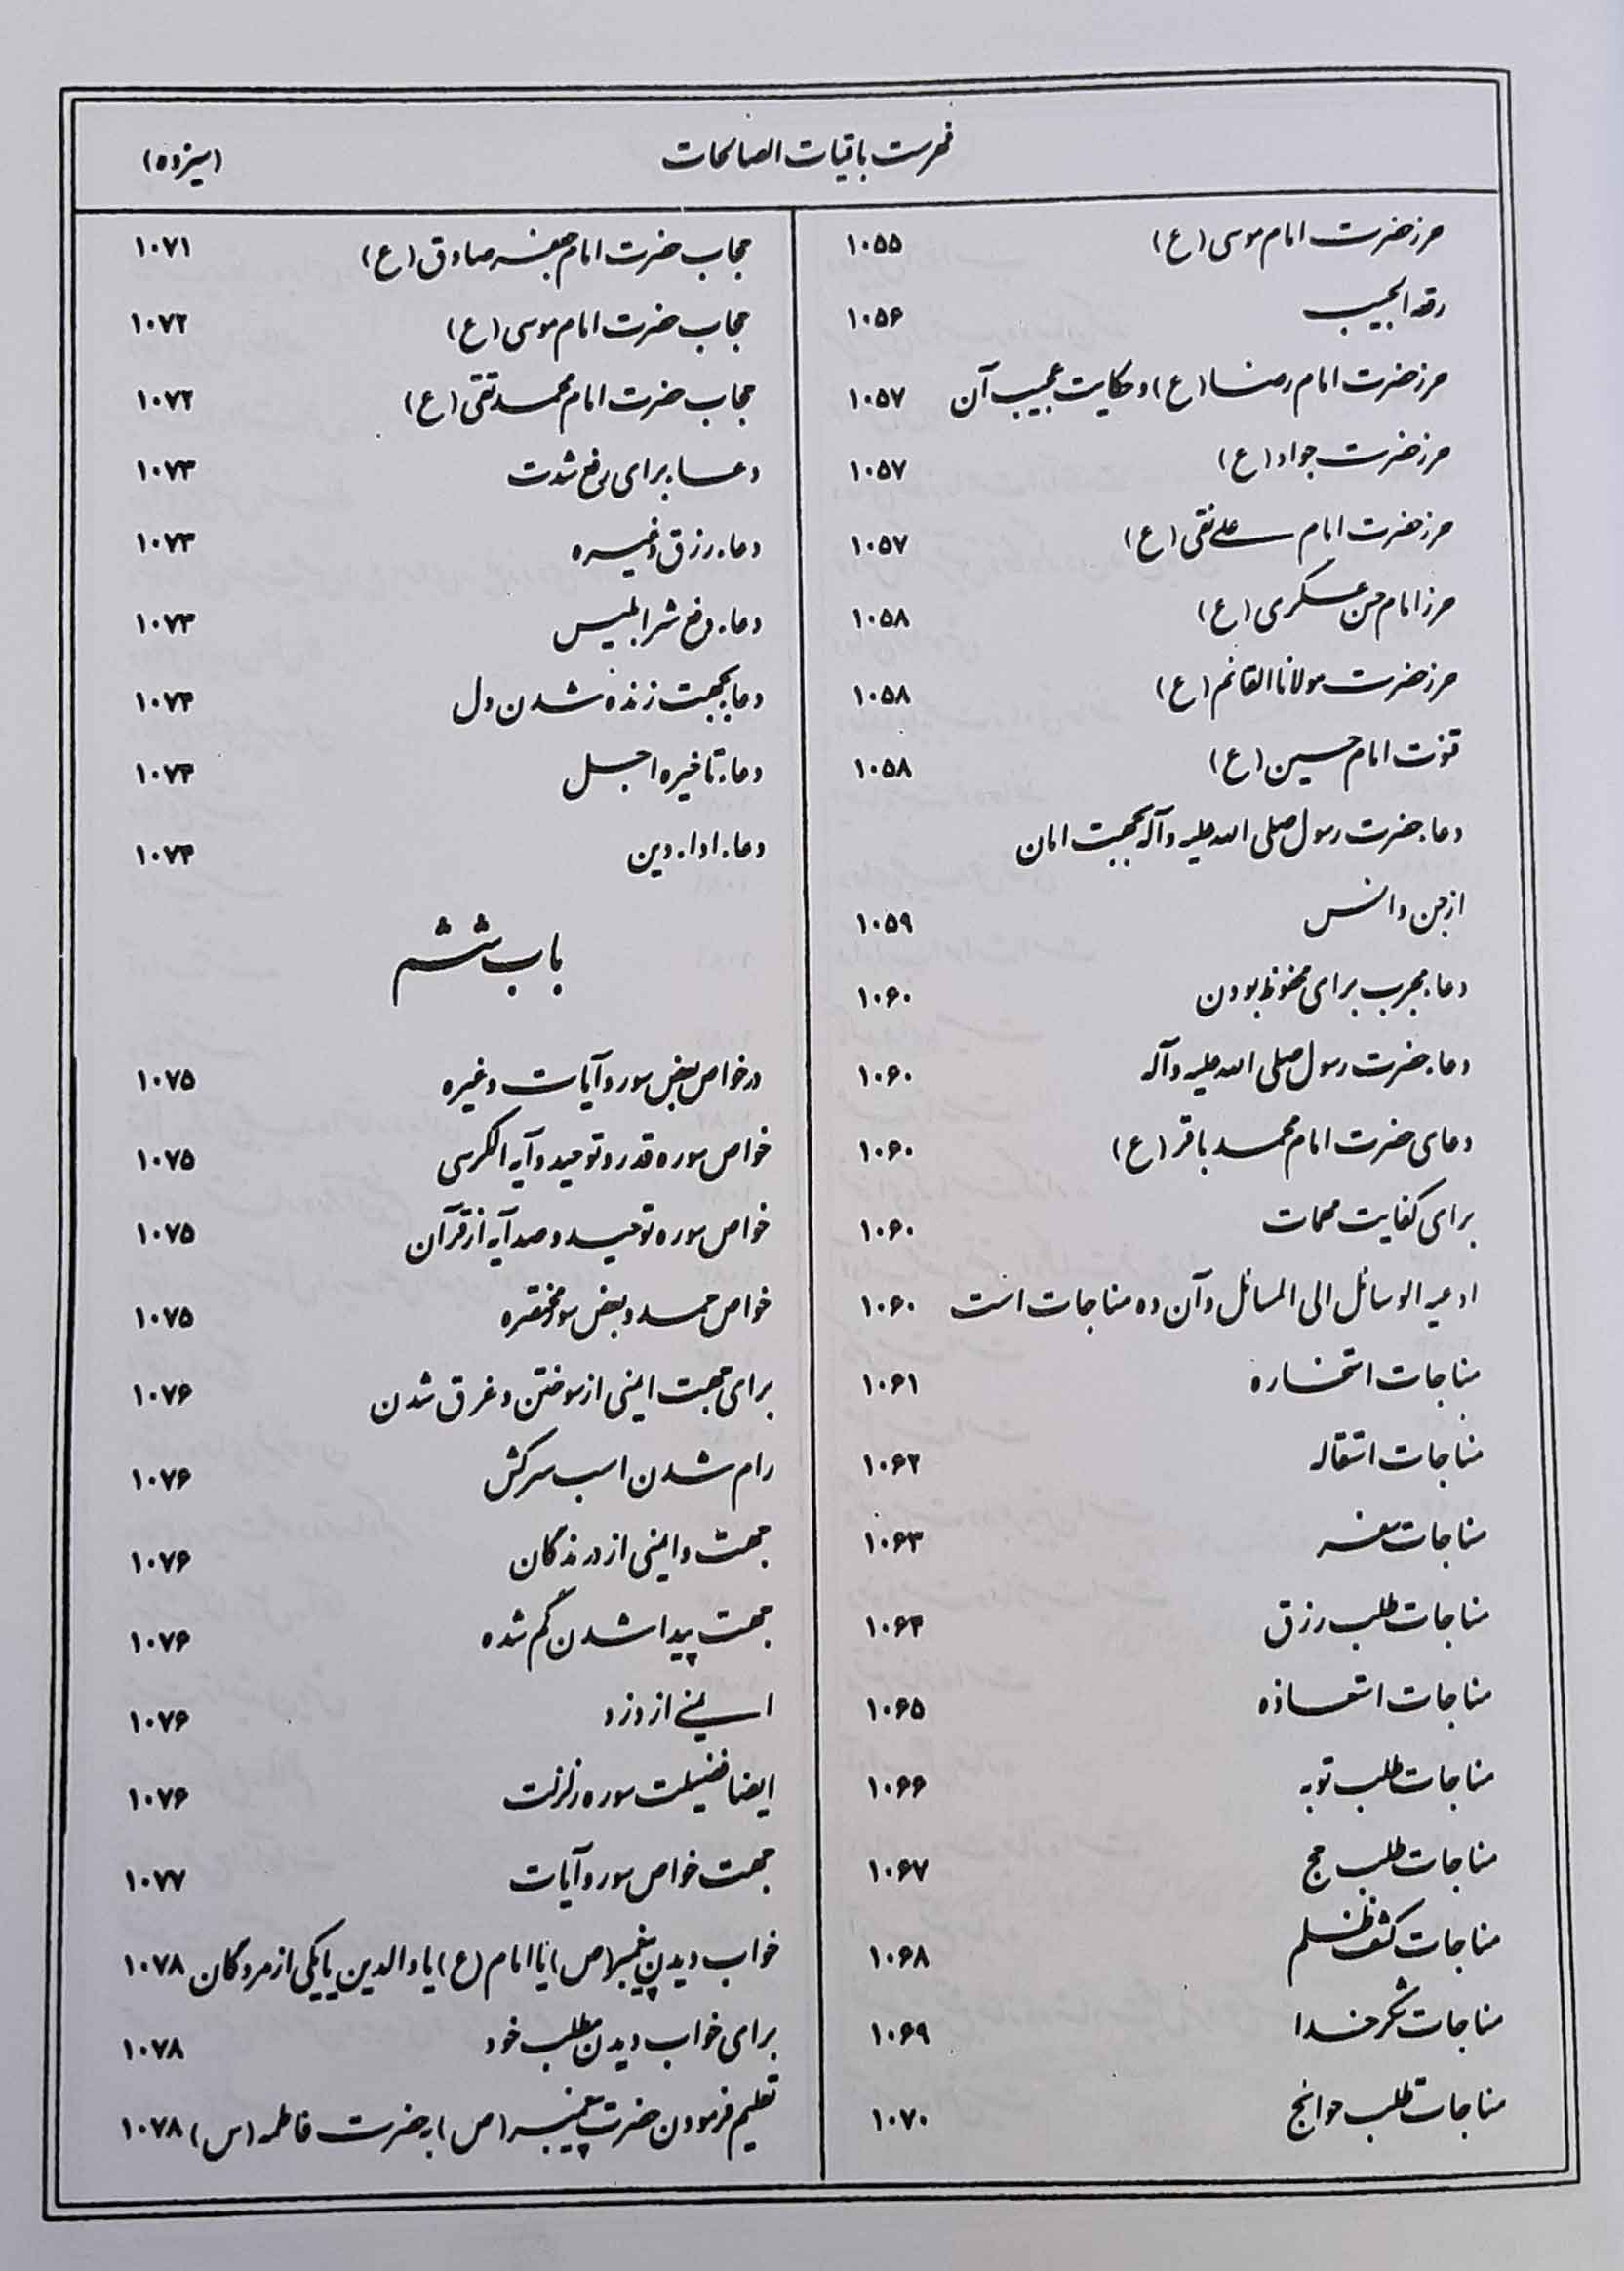 فهرست باقیات الصالحات
(سیزده)
حرز حضرت امام موسی (ع) ۱۰۵۵
رقعه الجیب ۱۰۵۶
حرز حضرت امام رضا (ع) و حکایت عجیب آن ۱۰۵۷
حرز حضرت جواد (ع) ۱۰۵۷
حرز حضرت امام علی نقی (ع) ۱۰۵۷
حرز امام حسن عسکری (ع) ۱۰۵۸
حرز حضرت مولانا القائم (ع) ۱۰۵۸
قنوت امام حسین (ع) ۱۰۵۸
دعاء حضرت رسول صلی الله علیه و آله بجهت امان
از جن و انس ۱۰۵۹
دعاء مجرب برای محفوظ بودن ۱۰۶۰
دعاء حضرت رسول صلی الله علیه و آله ۱۰۶۰
دعای حضرت امام محمد باقر (ع) ۱۰۶۰
برای کفایت مهمات ۱۰۶۰
ادعیه الوسائل الی المسائل و آن ده مناجات است ۱۰۶۰
مناجات استخاره ۱۰۶۱
مناجات استقاله ۱۰۶۲
مناجات سفر ۱۰۶۳
مناجات طلب رزق ۱۰۶۴
مناجات استعاذه ۱۰۶۵
مناجات طلب توبه ۱۰۶۶
مناجات طلب حج ۱۰۶۷
مناجات کشف ظلم ۱۰۶۸
مناجات شکر خدا ۱۰۶۹
مناجات طلب حوائج ۱۰۷۰
حجاب حضرت امام جعفر صادق (ع) ۱۰۷۱
حجاب حضرت امام موسی (ع) ۱۰۷۲
حجاب حضرت امام محمد تقی (ع) ۱۰۷۲
دعاء برای رفع شدت ۱۰۷۳
دعاء رزق و غیره ۱۰۷۳
دعاء دفع شر ابلیس ۱۰۷۳
دعا بجهت زنده شدن دل ۱۰۷۴
دعاء تاخیره اجل ۱۰۷۴
دعاء اداء دین ۱۰۷۴
باب ششم
در خواص بعض سور و آیات و غیره ۱۰۷۵
خواص سوره قدر و توحید و آیه الکرسی ۱۰۷۵
خواص سوره توحید و صد آیه از قرآن ۱۰۷۵
خواص حمد و بعض سور مختصره ۱۰۷۵
برای جهت ایمنی از سوختن و غرق شدن ۱۰۷۶
رام شدن اسب سرکش ۱۰۷۶
جهت و ایمنی از درندگان ۱۰۷۶
جهت پیدا شدن گم شده ۱۰۷۶
ایمنی از دزد ۱۰۷۶
ایضا فضیلت سوره زلزلت ۱۰۷۶
جهت خواص سور و آیات ۱۰۷۷
خواب دیدن پیغمبر (ص) یا امام (ع) یا والدین یا یکی از مردگان ۱۰۷۸
برای خواب دیدن مطلب خود ۱۰۷۸
تعلیم فرمودن حضرت پیغمبر (ص) به حضرت فاطمه (س) ۱۰۷۸